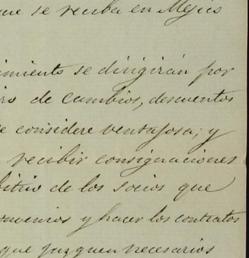 que se reciba en Mejico
cimiento se dirigirán por
iro de cambios, descuentos
e considere ventajosa; y
recibir consignaciones
bitrio de los socios que
onvenios y hacer los contratos
que juzguen necesarios